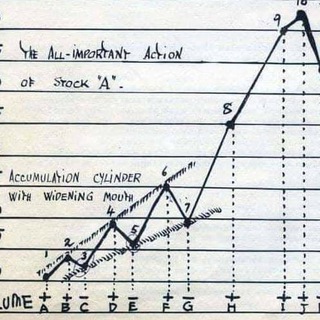 10
9
THE ALL-IMPORTANT ACTION
OF STOCK "A".
8
ACCUMULATION CYLINDER
WITH WIDENING MOUTH
6
4
7
2
5
1
3
LUME + + - + - + - + + +
A B C D E F G H I J